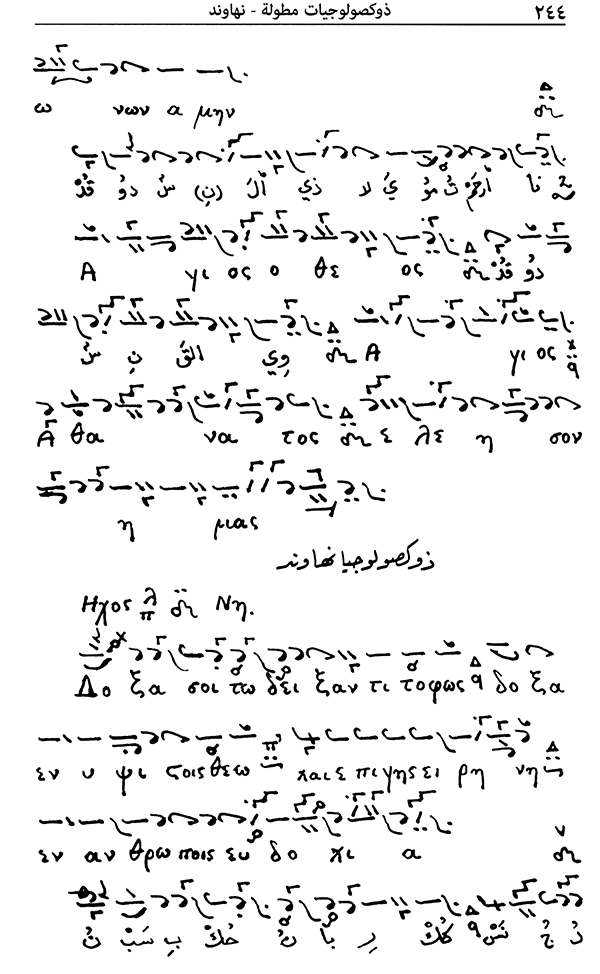 ٢٤٤ ذوكصولوجيات مطولة - نهاوند
ω νων α μην
قدْ دو سْ (نِ) ألَ ذي لا يَ مو تُ ارحَمْ نا
Α γι ος ο θε ος قدْ دو
سْ نِ القَ وِي Α γι ος
Α θα να τος ε λε η σον
η μας
ذوكصولوجيا نهاوند
Ηχος λ π Νη.
Δο ξα σοι τω δει ξαν τι το φως δο ξα
εν υ ψι τοις θεω και ε πι γης ει ρη νη
εν αν θρω ποις ευ δο κι α
نُ سَبْ بِ حُكْ نُ با رِ كُكْ نَسْ جُ دُ